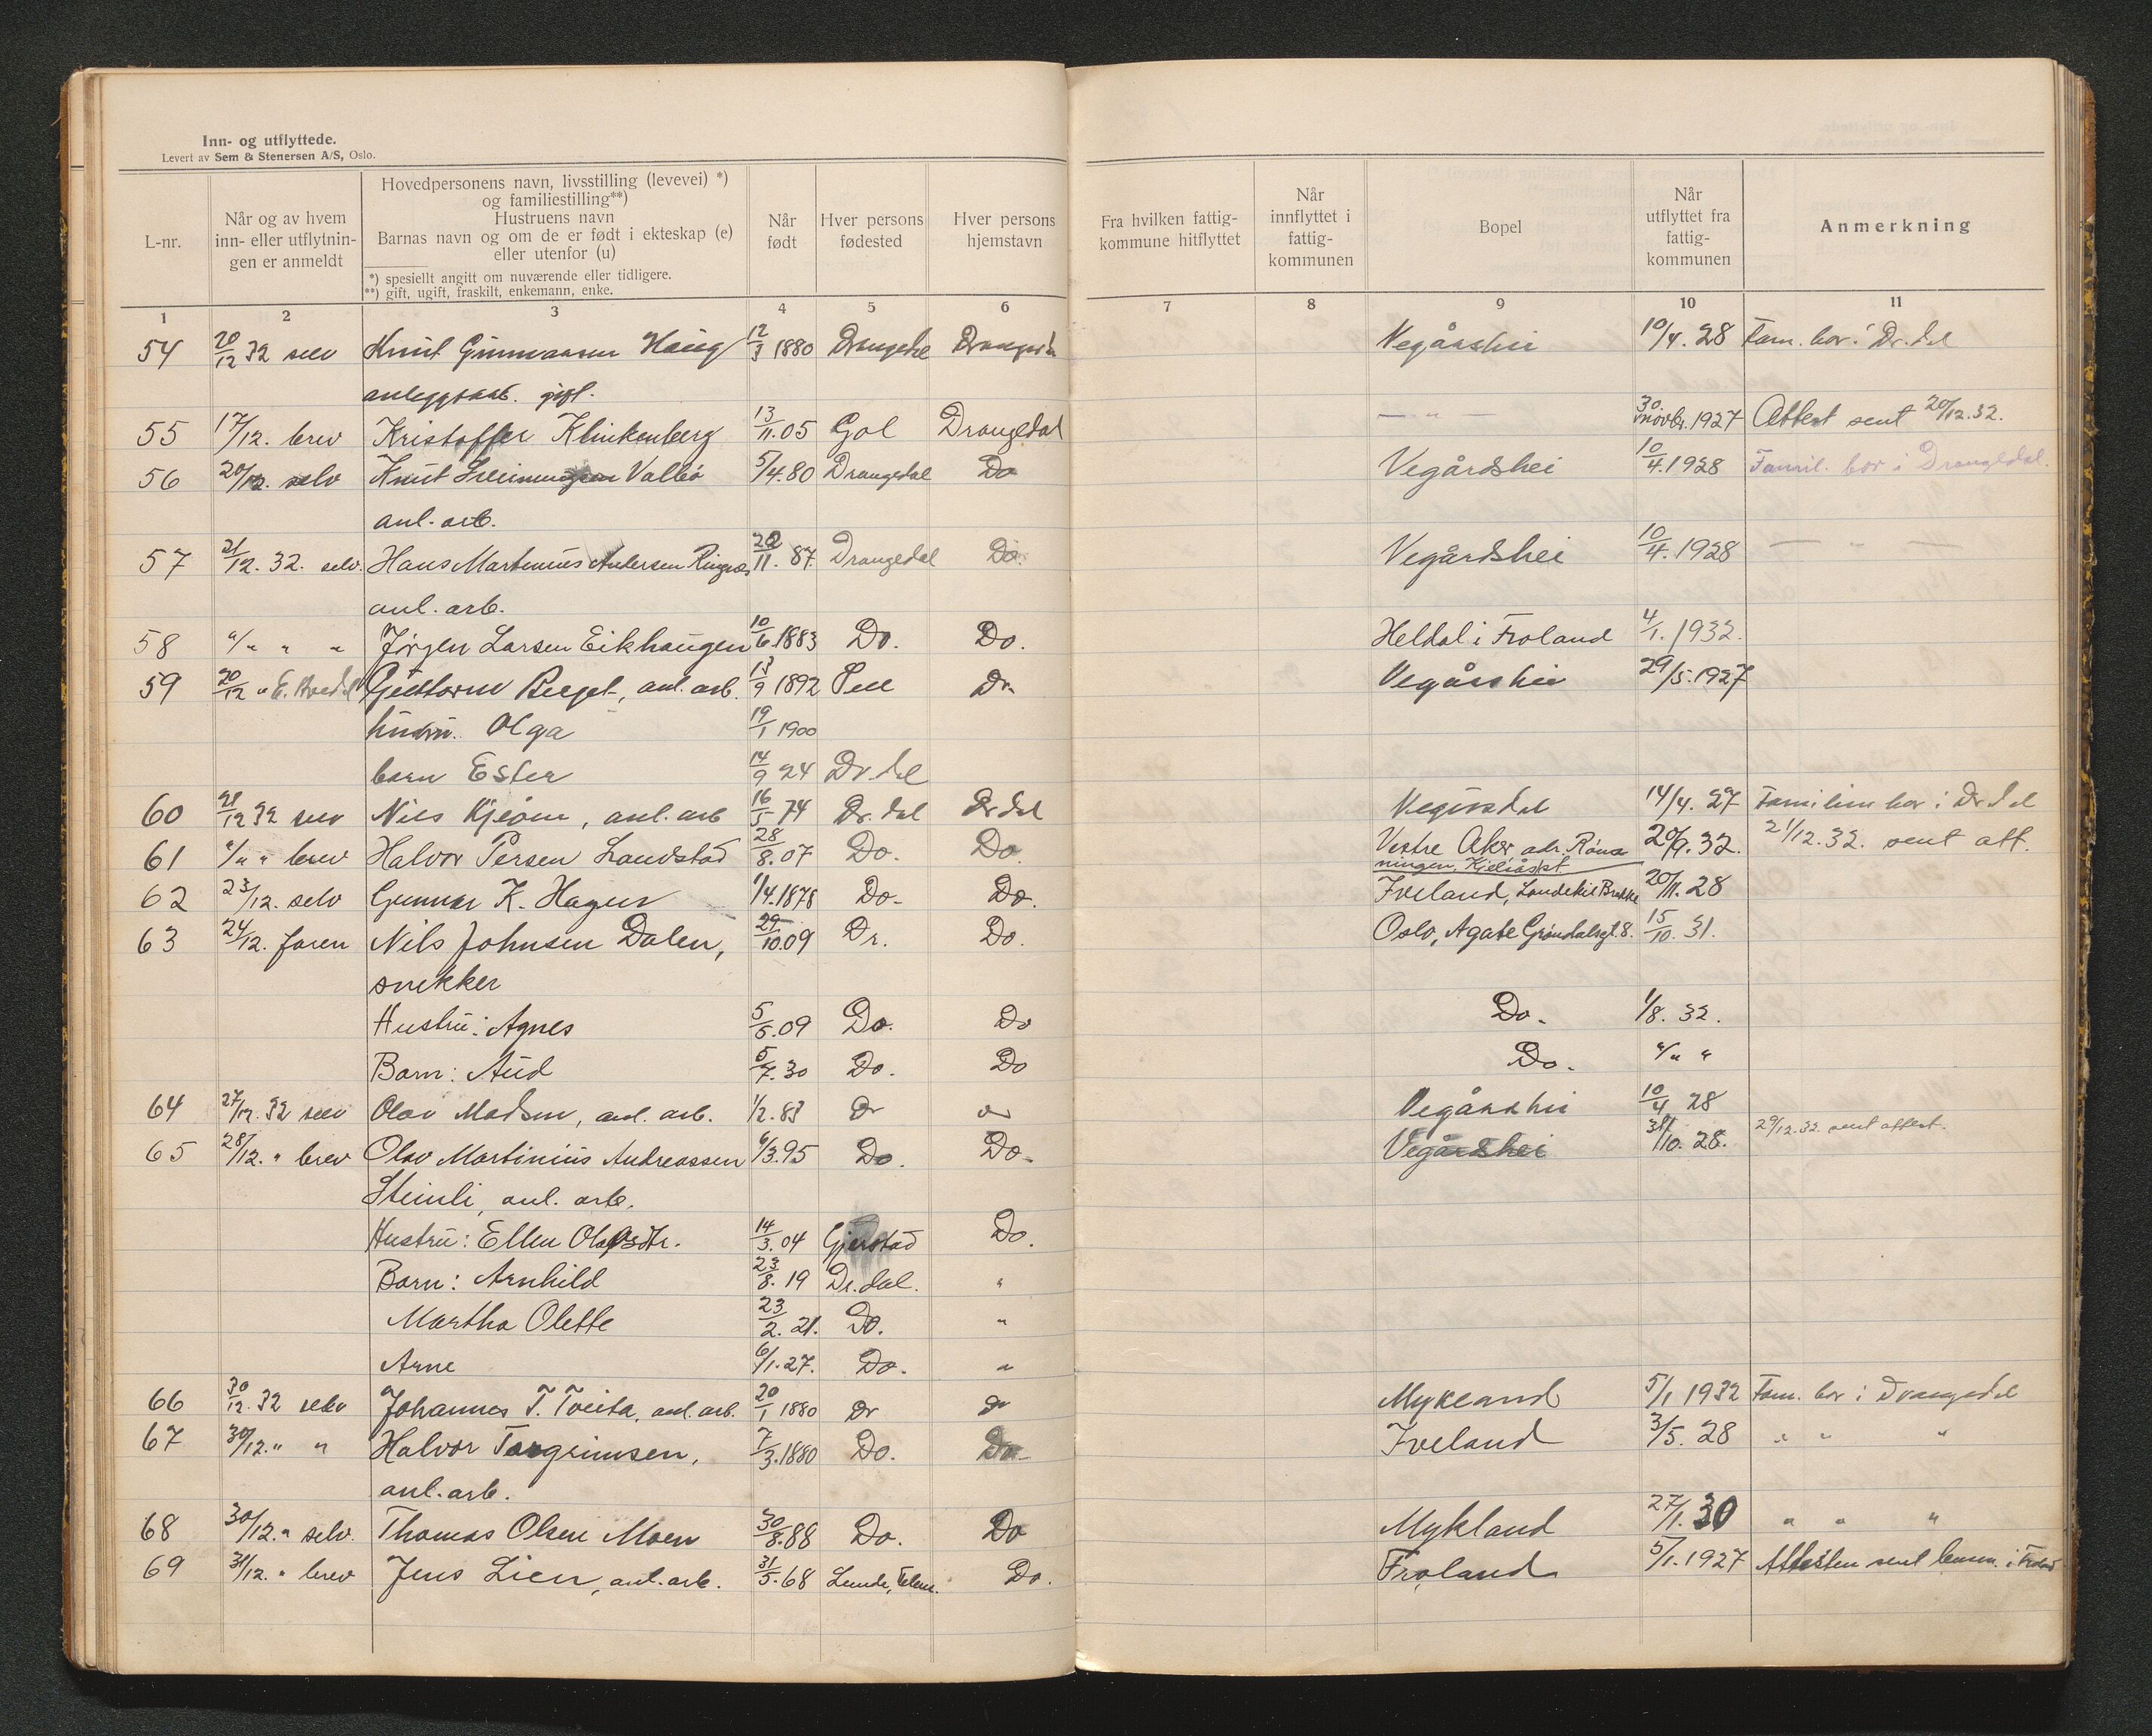 Inn- og utflyttede.
Levert av Sem & Stenersen A/S, Oslo.
L-nr.
Når og av hvem
inn- eller utflytnin-
gen er anmeldt
Hovedpersonens navn, livsstilling (levevei) *)
og familiestilling**)
Hustruens navn
Barnas navn og om de er født i ekteskap (e)
eller utenfor (u)
*) spesiellt angitt om nuværende eller tidligere.
**) gift, ugift, fraskilt, enkemann, enke.
Når
født
Hver persons
fødested
Hver persons
hjemstavn
Fra hvilken fattig-
kommune hitflyttet
Når
innflyttet i
fattig-
kommunen
Bopel
Når
utflyttet fra
fattig-
kommunen
Anmerkning
1 2 3 4 5 6 7 8 9 10 11
54 20/12 32 selv Knut Gunnarsen Haug 12/3 1880 Drangedal Drangedal Vegårshei 10/4. 28 Fam. bor i Dr.dal
anleggsarb. gift.
55 17/12. brev Kristoffer Klinkenberg 13/11.05 Gol Drangedal — " — 30 novbr. 1927 Attest sent 20/12.32.
56 20/12. selv Knut Valbø 5/4.80 Drangedal Do Vegårdshei 10/4.1928 Famil. bor i Drangedal.
anl. arb.
57 21/12. 32. selv. Hans Martinius Andersen Ringnes 22/11. 87. Drangedal Do. Vegårdshei 10/4.1928 — " —
anl. arb.
58 "/" " " Jørgen Larsen Eikhaugen 10/6.1883 Do. Do. Heldal i Froland 4/1. 1932.
59 20/12 " Guttorm Berget, anl. arb. 13/9 1892 Dr. Vegårshei 29/5.1927
hustru. Olga 19/1 1900
barn Ester 14/9 24 Dr.dal
60 21/12 32 selv Nils Kjeom, anl. arb 16/5 74 Dr. dal Dr dal 14/4. 27 Familien bor i Dr.dal
61 "/" " brev Halvor Persen Landstad 28/8.07 Do. Do Vestre Aker adr. 20/9. 32. 21/12.32. sent att.
62 23/12. selv Gunnar K. Hagen 1/4.1878 Do. Do. Iveland, 20/11. 28
63 24/12. faren Nils Johnsen Dalen, 29/10.09 Dr. Do. Oslo, Agate Grøndalsgt. 8. 15/10. 31.
snekker
Hustru: Agnes 5/5.09 Do. Do Do. 1/8. 32.
Barn: Aud 5/7. 30 Do. Do Do. "/" "
64 27/12. 32 selv Olav Madsen, anl. arb. 1/2. 83 Dr Vegårshei 10/4 28
65 28/12. " brev Olav Martinius Andreassen 6/3.95 Do. Do. Vegårdshei 31/10. 28. 29/12.32. sent attest.
Steinli, anl. arb.
Hustru: Ellen Olafsdtr. 14/3. 04 Gjerstad Do.
Barn: Arnhild 23/8. 19 Dr. dal. "
Martha Olette 23/2. 21. Do. "
Arne 6/1.27. Do. "
66 30/12. 32 selv Johannes T. Tveita, anl. arb. 20/1 1880 Dr Dr Mykland 5/1 1932 Fam. bor i Drangedal
67 30/12. " " Halvor Torgrimsen, 7/3.1880 Do. Do. Iveland 3/5. 28 " " "
anl. arb.
68 30/12. " selv. Thomas Olsen Moen 30/8.88 Do. Do Mykland 27/1.30 " " "
69 31/12. " brev Jens Lien, anl. arb. 31/5.68 Lunde, Telem. Do. Froland 5/1.1927 Attesten sent lensm. i Froland